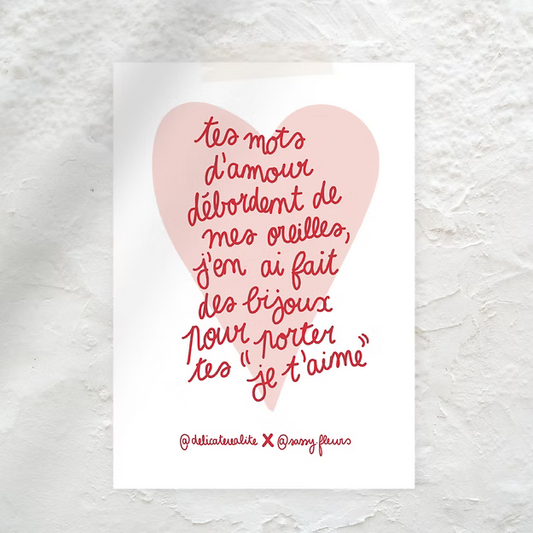 tes mots
d'amour
débordent de
mes oreilles,
j'en ai fait
des bijoux
pour porter
tes "je t'aime"
@delicaterealite X @sassyfleurs